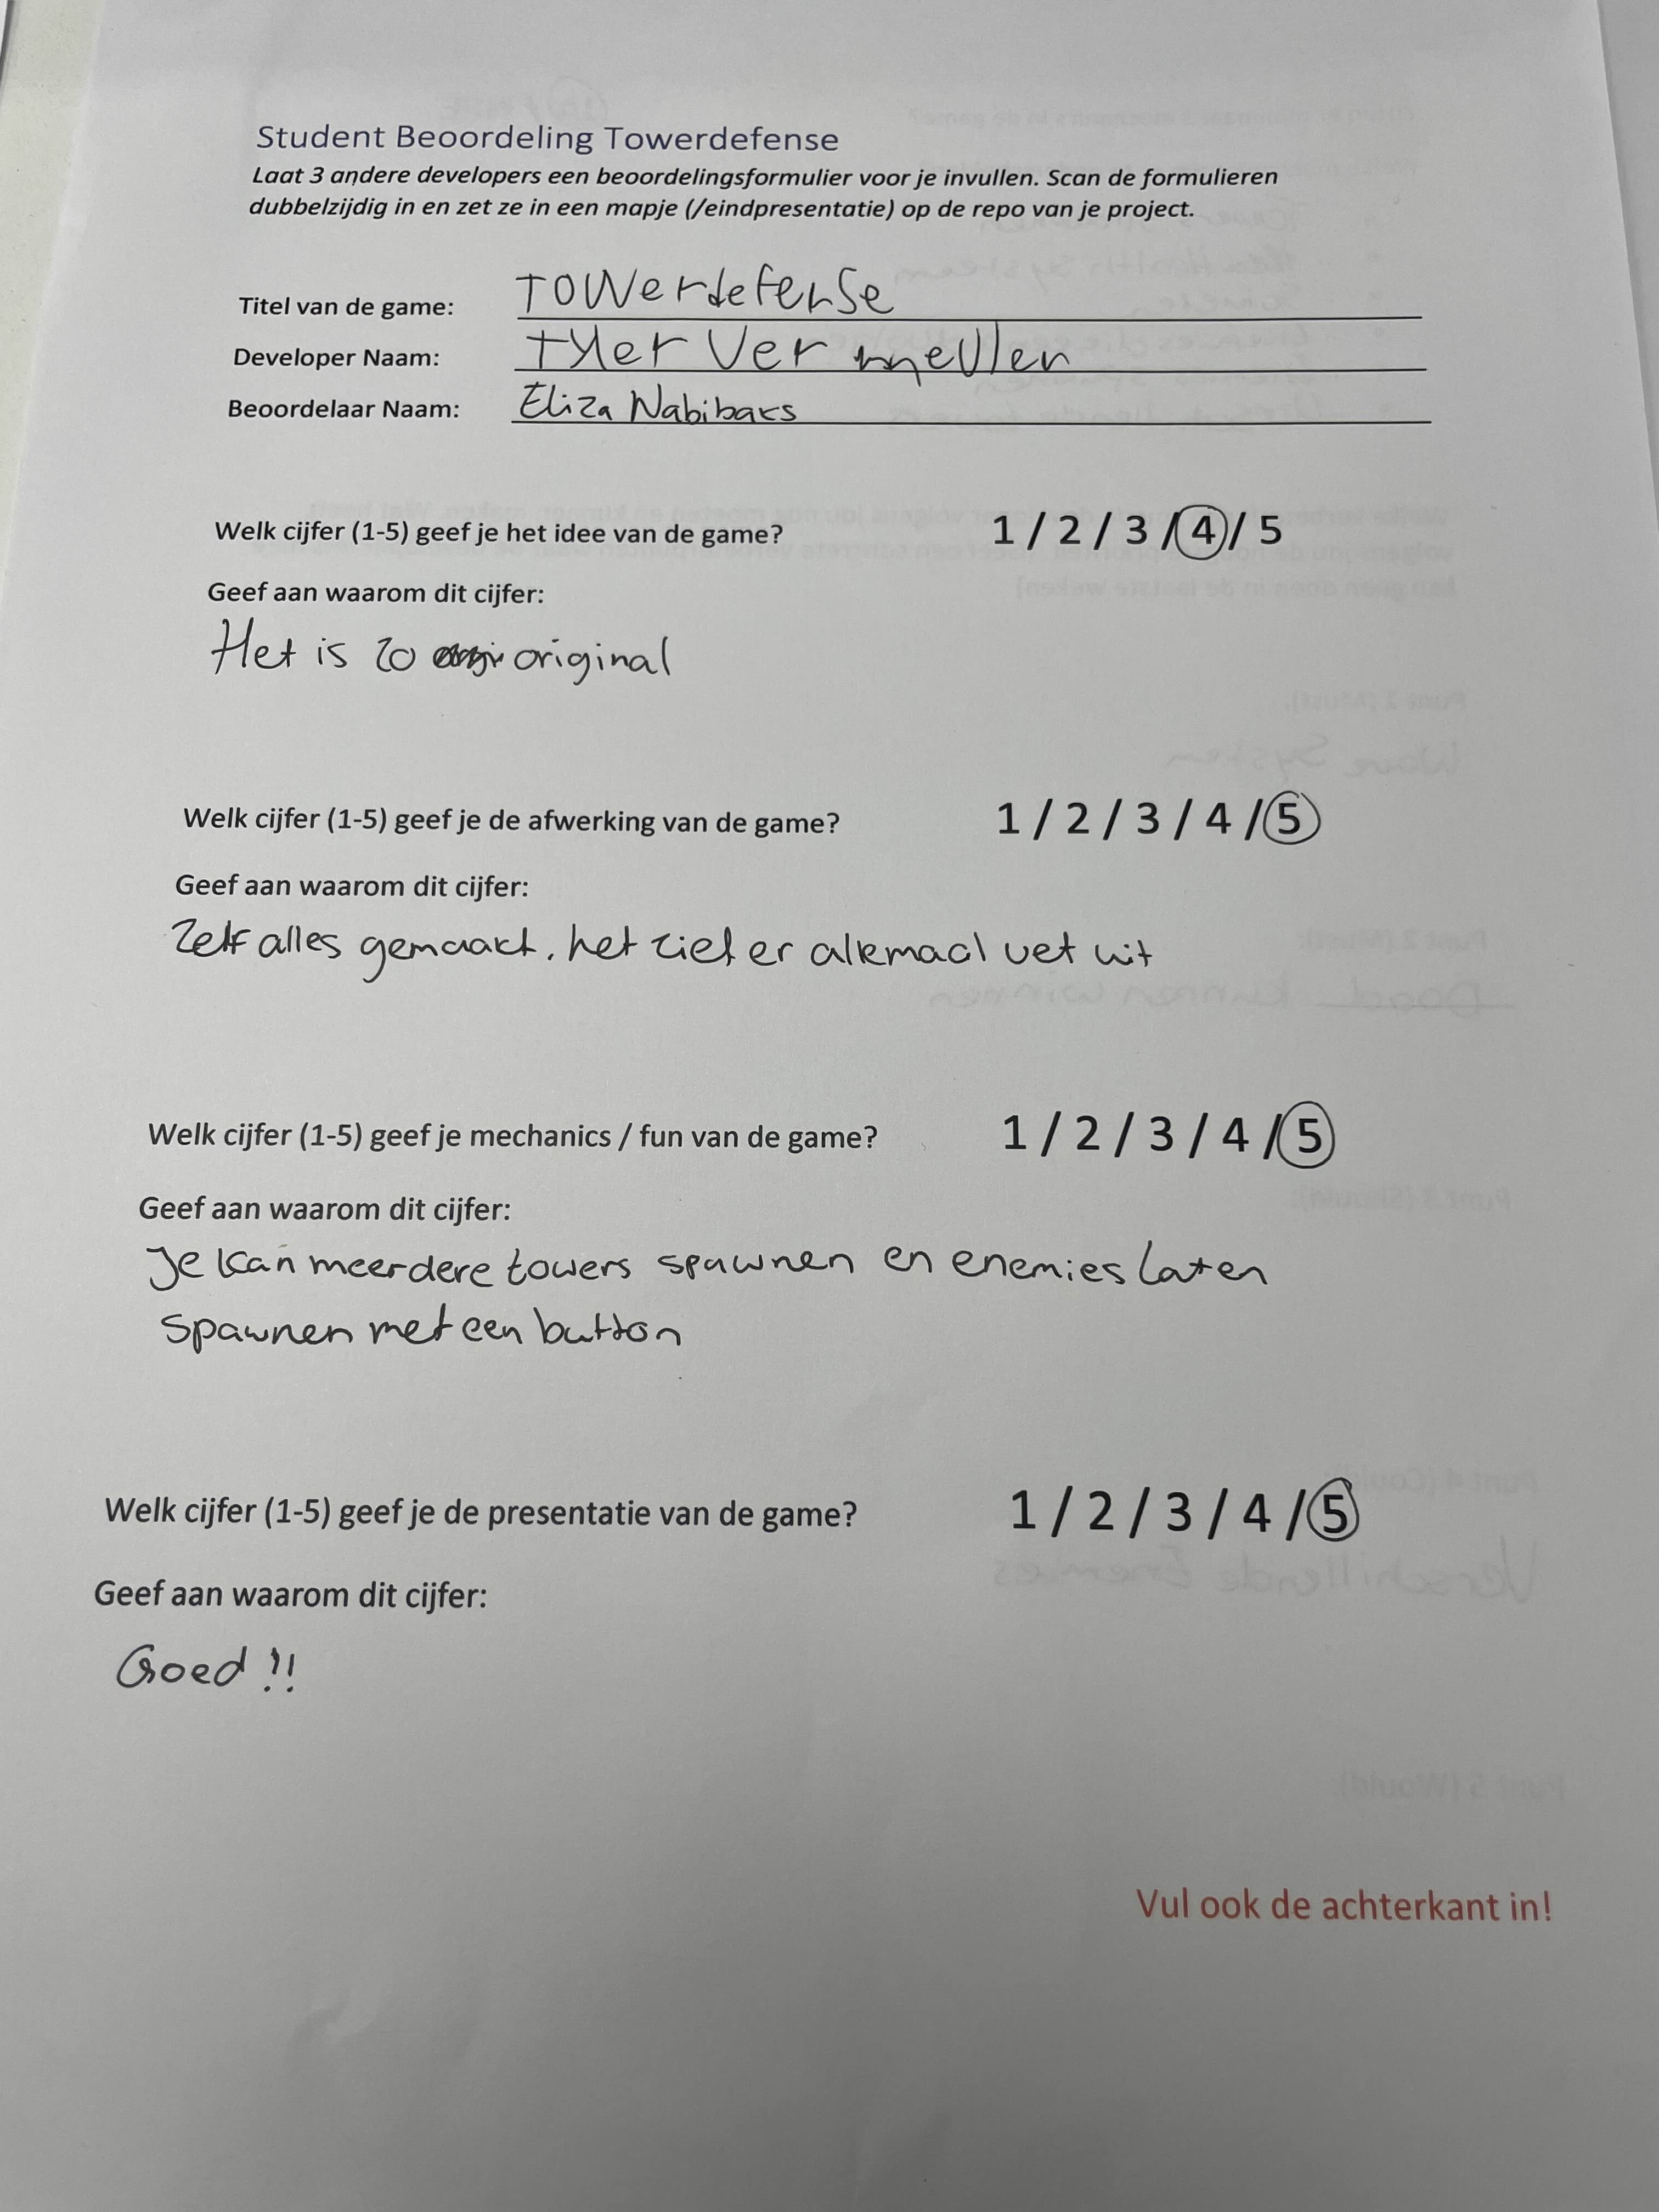 Student Beoordeling Towerdefense
Laat 3 andere developers een beoordelingsformulier voor je invullen. Scan de formulieren
dubbelzijdig in en zet ze in een mapje (/eindpresentatie) op de repo van je project.
Titel van de game: Towerdefense
Developer Naam: Tyler Vermeulen
Beoordelaar Naam: Eliza Nabibaks
Welk cijfer (1-5) geef je het idee van de game? 1 / 2 / 3 / 4 / 5
Geef aan waarom dit cijfer:
Het is zo original
Welk cijfer (1-5) geef je de afwerking van de game? 1 / 2 / 3 / 4 / 5
Geef aan waarom dit cijfer:
Zelf alles gemaakt. het ziet er allemaal vet uit
Welk cijfer (1-5) geef je mechanics / fun van de game? 1 / 2 / 3 / 4 / 5
Geef aan waarom dit cijfer:
Je kan meerdere towers spawnen en enemies laten
spawnen met een button
Welk cijfer (1-5) geef je de presentatie van de game? 1 / 2 / 3 / 4 / 5
Geef aan waarom dit cijfer:
Goed !!
Vul ook de achterkant in!